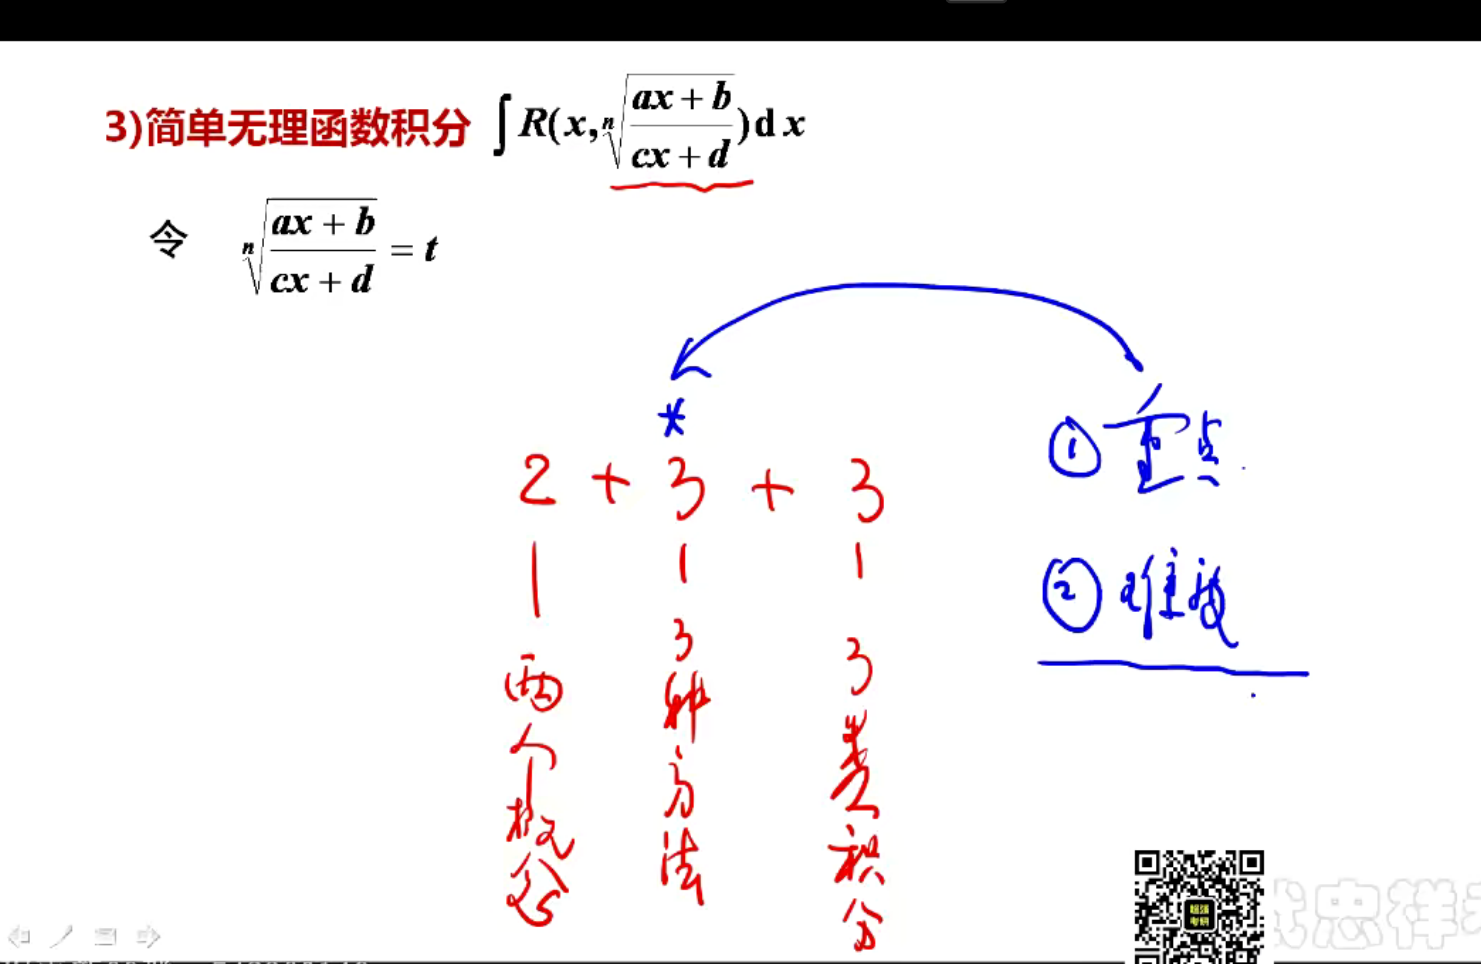 3)简单无理函数积分 ∫R(x, ⁿ√((ax+b)/(cx+d)))dx
令 ⁿ√((ax+b)/(cx+d)) = t
*
2 + 3 + 3
两个概念
3种方法
3类积分
① 重点
② 难度
忠祥